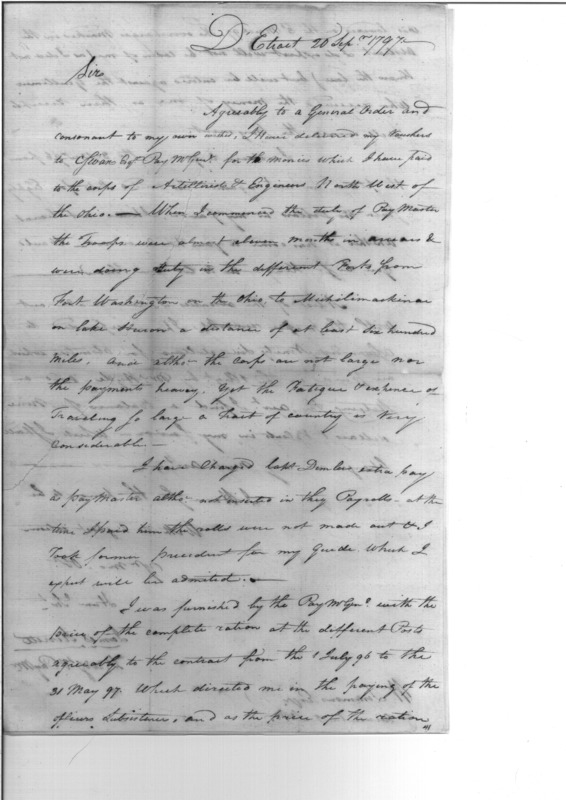 D Etroit 20 Sepr 1797
Sir,
Agreably to a General Order and
consonant to my own I have delivered my Vouchers
to C Swan Esqr Pay M Genl for the monies which I have paid
to the corps of Artillerists & Engineers North West of
the Ohio. — When I commenced the duty of Pay Master
the Troops were almost eleven months in arrears &
were doing duty in the different Posts from
Fort Washington on the Ohio to Michilimackinac
on lake Huron a distance of at least Six hundred
miles, and altho the corps are not large nor
the payments heavy. Yet the Fatigue & expence of
Traveling So large a tract of country is very
considerable —
I have Charged Capt extra pay
as pay Master altho not inserted in they Payrolls - at the
time I paid him the rolls were not made out & I
Took former precedent for my Guide. Which I
expect will be admited. —
I was furnished by the Pay M Genl with the
price of the complete ration at the different Posts
agreably to the contract from the 1 July 96 to the
31 May 97. Which directed me in the paying of the
officers Subsistence, and as the price of the ration